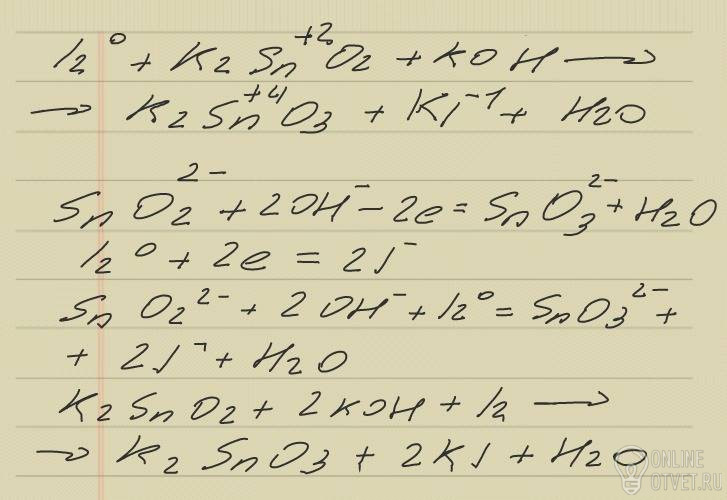 I₂⁰ + K₂Sn⁺²O₂ + KOH →
→ K₂Sn⁺⁴O₃ + KI⁻¹ + H₂O
SnO₂²⁻ + 2OH⁻ - 2e = SnO₃²⁻ + H₂O
I₂⁰ + 2e = 2I⁻
SnO₂²⁻ + 2OH⁻ + I₂⁰ = SnO₃²⁻ +
+ 2I⁻ + H₂O
K₂SnO₂ + 2KOH + I₂ →
→ K₂SnO₃ + 2KI + H₂O
ONLINE
OTVET.RU